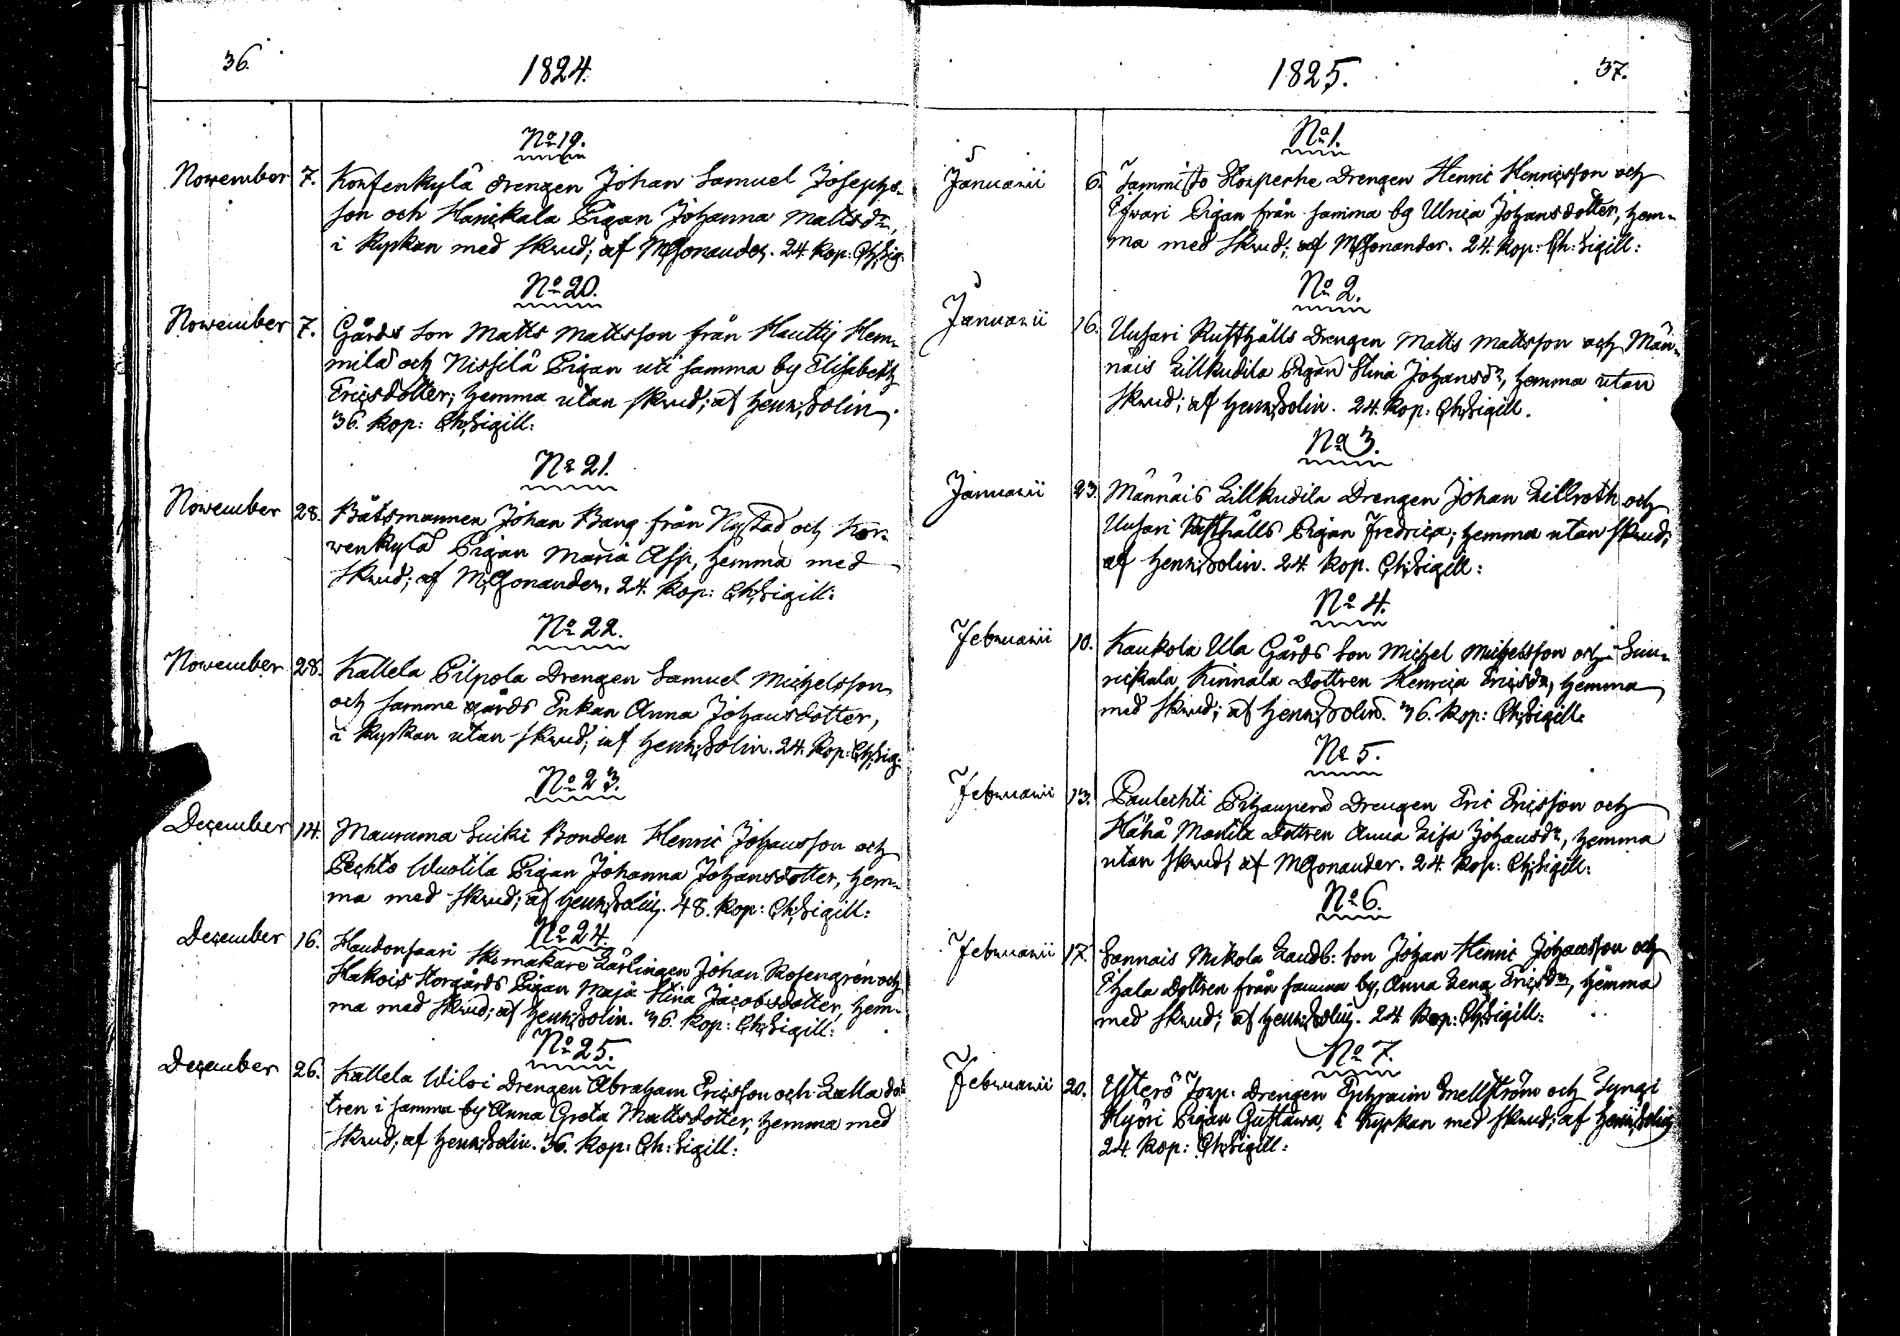 36.
1824.
No 19.
November 7. Korfenkylä drengen Johan Samuel Josephs-
son och Hanikala Pigan Johanna Mattsdr,
i Kyrkan med skrud; af MGonander. 24. kop: Ch:Sig:
No 20.
November 7. Gårds Son Matts Mattsson från Hauttij Hem-
milä och Nissilä Pigan uti samma by Elisabeth
Ericsdotter; hemma utan skrud; af Henr:Solin.
36. kop: Ch:Sigill:
No 21.
November 28. Båtsmannen Johan Bang från Nystad och Kor-
wenkylä Pigan Maria Asp, hemma med
skrud; af MGonander. 24. kop: Ch:Sigill:
No 22.
November 28. Kallela Pilpola Drengen Samuel Michelsson
och samme gårds Enkan Anna Johansdotter,
i Kyrkan utan skrud; af Henr:Solin. 24. kop: Ch:Sig:
No 23.
December 14. Maurama Suiki Bonden Henric Johansson och
Pechto Wuotila Pigan Johanna Johansdotter, hem-
ma med skrud; af Henr:Solin. 48. kop: Ch:Sigill:
No 24.
December 16. Haudonsaari Skomakare Lärlingen Johan Rosengrén och
Hakois Storgårds Pigan Maja Stina Jacobsdotter, hem-
ma med skrud; af Henr:Solin. 36. kop: Ch:Sigill:
No 25.
December 26. Kallela Wilpi Drengen Abraham Ericsson och Lalla dot-
tren i samma by Anna Greta Mattsdotter, hemma med
skrud; af Henr:Solin. 36. kop: Ch:Sigill:
1825.
37.
No 1.
Januarii 6. Tammisto Horperhe Drengen Henric Henricsson och
Pigan från samma by Ulrica Johansdotter, hem-
ma med skrud; af MGonander. 24. kop: Ch:Sigill:
No 2.
Januarii 16. Uusari Rusthålls Drengen Matts Mattsson och Män-
näis Lillkudila Pigan Stina Johansdr, hemma utan
skrud; af Henr:Solin. 24. kop: Ch:Sigill.
No 3.
Januarii 23. Männäis Lillkudila Drengen Johan Lillroth och
Uusari Rusthålls Pigan Fredrica; hemma utan skrud;
af Henr:Solin. 24. kop. Ch:Sigill:
No 4.
Februarii 10. Kaukola Ula Gårds Son Michel Michelsson och Sun-
rickala Kinnala Dottren Henrica Ericsdr, hemma
med skrud; af Henr:Solin. 36. kop: Ch:Sigill:
No 5.
Februarii 13. Paulechti Pihanperä Drengen Eric Ericsson och
Hähä Mantila Dottren Anna Lisa Johansdr, hemma
utan skrud; af MGonander. 24. kop: Ch:Sigill:
No 6.
Februarii 17. Sannais Mikola Landb: Son Johan Henric Johansson och
Ehala dottren från samma by, Anna Lena Ericsdr, hemma
med skrud; af Henr:Solin. 24. kop: Ch:Sigill:
No 7.
Februarii 20. Usterö Torp: Drengen Ephraim Snellström och Syngi
Hyöri Pigan Gustawa, i Kyrkan med skrud; af Henr:Solin
24. kop: Ch:Sigill: